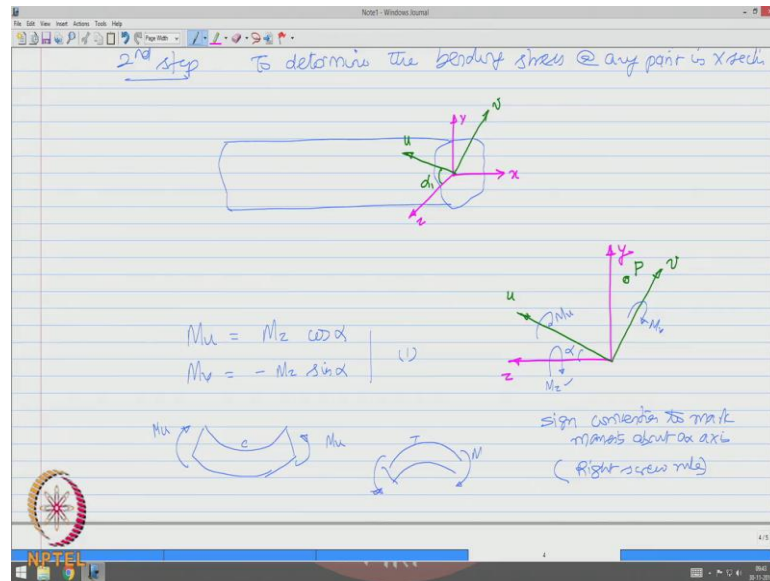 Note1 - Windows Journal
File Edit View Insert Actions Tools Help
Page Width
2nd step To determine the bending stress @ any point is x secti
y
v
u
α1
x
z
y
P
v
u
Mu
Mv
α
z
Mz
Mu = Mz cosα
Mv = -Mz sinα
(1)
Mu
C
Mu
T
sign convention to mark
moments about axis
(Right screw rule)
NPTEL
4/5
4
09:43
30-11-20